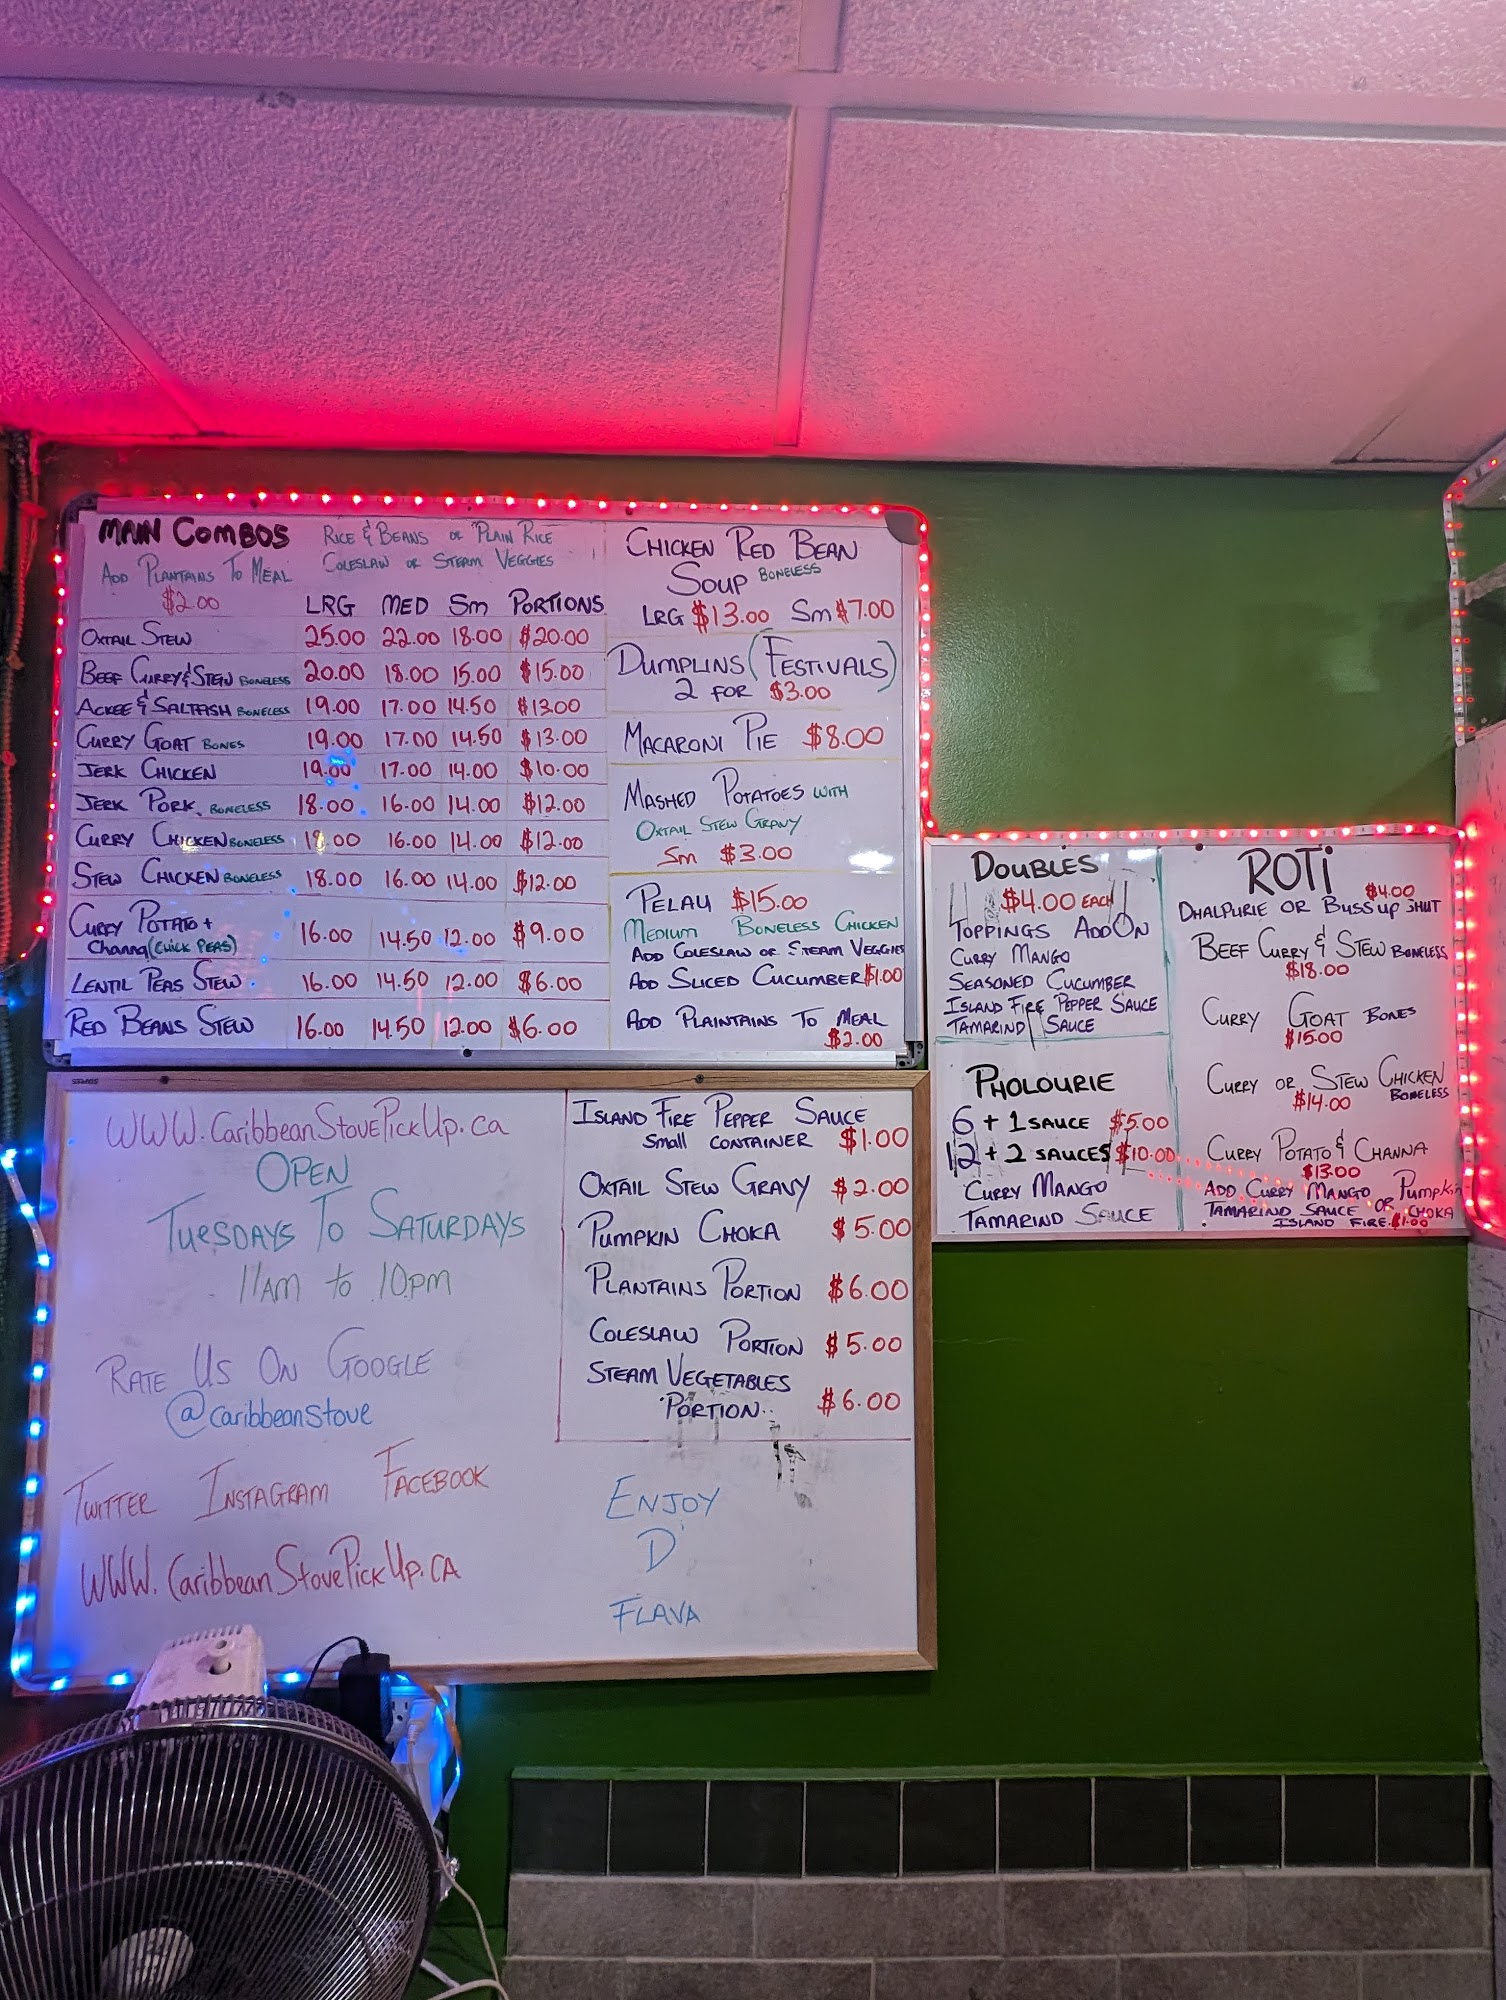 MAIN COMBOS
RICE & BEANS OR PLAIN RICE
COLESLAW OR STEAM VEGGIES
ADD PLANTAINS TO MEAL
$2.00
LRG MED Sm PORTIONS
OXTAIL STEW 25.00 22.00 18.00 $20.00
BEEF CURRY & STEW BONELESS 20.00 18.00 15.00 $15.00
ACKEE & SALTFISH BONELESS 19.00 17.00 14.50 $13.00
CURRY GOAT BONES 19.00 17.00 14.50 $13.00
JERK CHICKEN 19.00 17.00 14.00 $10.00
JERK PORK BONELESS 18.00 16.00 14.00 $12.00
CURRY CHICKEN BONELESS 18.00 16.00 14.00 $12.00
STEW CHICKEN BONELESS 18.00 16.00 14.00 $12.00
CURRY POTATO +
Channa (CHICK PEAS) 16.00 14.50 12.00 $9.00
LENTIL PEAS STEW 16.00 14.50 12.00 $6.00
RED BEANS STEW 16.00 14.50 12.00 $6.00
CHICKEN RED BEAN
SOUP BONELESS
LRG $13.00 Sm $7.00
DUMPLINS (FESTIVALS)
2 FOR $3.00
MACARONI PIE $8.00
MASHED POTATOES WITH
OXTAIL STEW GRAVY
Sm $3.00
PELAU $15.00
MEDIUM BONELESS CHICKEN
ADD COLESLAW OR STEAM VEGGIES
ADD SLICED CUCUMBER $1.00
ADD PLAINTAINS TO MEAL
$2.00
DOUBLES
$4.00 EACH
TOPPINGS ADD ON
CURRY MANGO
SEASONED CUCUMBER
ISLAND FIRE PEPPER SAUCE
TAMARIND SAUCE
PHOLOURIE
6 + 1 SAUCE $5.00
12 + 2 SAUCES $10.00
CURRY MANGO
TAMARIND SAUCE
ROTI
$4.00
DHALPURIE OR BUSS UP SHUT
BEEF CURRY & STEW BONELESS
$18.00
CURRY GOAT BONES
$15.00
CURRY OR STEW CHICKEN
BONELESS
$14.00
CURRY POTATO & CHANNA
$13.00
ADD CURRY MANGO OR PUMPKIN
TAMARIND SAUCE CHOKA
ISLAND FIRE $1.00
WWW.CaribbeanStovePickUp.ca
OPEN
TUESDAYS TO SATURDAYS
11AM to 10PM
RATE US ON GOOGLE
@caribbeanstove
TWITTER INSTAGRAM FACEBOOK
WWW.CaribbeanStovePickUp.CA
ISLAND FIRE PEPPER SAUCE
SMALL CONTAINER $1.00
OXTAIL STEW GRAVY $2.00
PUMPKIN CHOKA $5.00
PLANTAINS PORTION $6.00
COLESLAW PORTION $5.00
STEAM VEGETABLES
PORTION.. $6.00
ENJOY
D
FLAVA